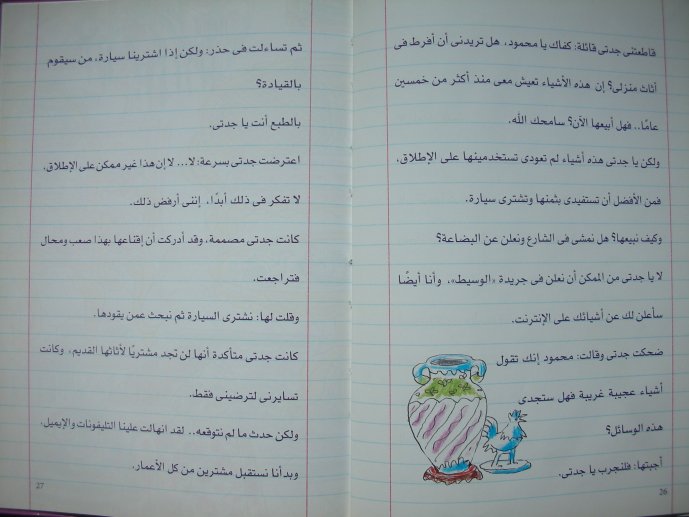 قاطعتنى جدتى قائلة: كفاك يا محمود، هل تريدنى أن أفرط فى
أثاث منزلى؟ إن هذه الأشياء تعيش معى منذ أكثر من خمسين
عامًا.. فهل أبيعها الأن؟ سامحك الله.
ولكن يا جدتى هذه أشياء لم تعودى تستخدمينها على الإطلاق،
فمن الأفضل أن تستفيدى بثمنها وتشترى سيارة.
وكيف نبيعها؟ هل نمشى فى الشارع ونعلن عن البضاعة؟
لا يا جدتى من الممكن أن نعلن فى جريدة «الوسيط»، وأنا أيضًا
سأعلن لك عن أشيائك على الإنترنت.
ضحكت جدتى وقالت: محمود إنك تقول
أشياء عجيبة غريبة فهل ستجدى
هذه الوسائل؟
أجبتها: فلنجرب يا جدتى.
26
ثم تساءلت فى حذر: ولكن إذا اشترينا سيارة، من سيقوم
بالقيادة؟
بالطبع أنت يا جدتى.
اعترضت جدتى بسرعة: لا... لا إن هذا غير ممكن على الإطلاق،
لا تفكر فى ذلك أبدًا، إننى أرفض ذلك.
كانت جدتى مصممة، وقد أدركت أن إقناعها بهذا صعب ومحال
فتراجعت.
وقلت لها: نشترى السيارة ثم نبحث عمن يقودها.
كانت جدتى متأكدة أنها لن تجد مشتريًا لأثاثها القديم، وكانت
تسايرنى لترضينى فقط.
ولكن حدث ما لم نتوقعه.. لقد انهالت علينا التليفونات والإيميل،
وبدأنا نستقبل مشترين من كل الأعمار.
27